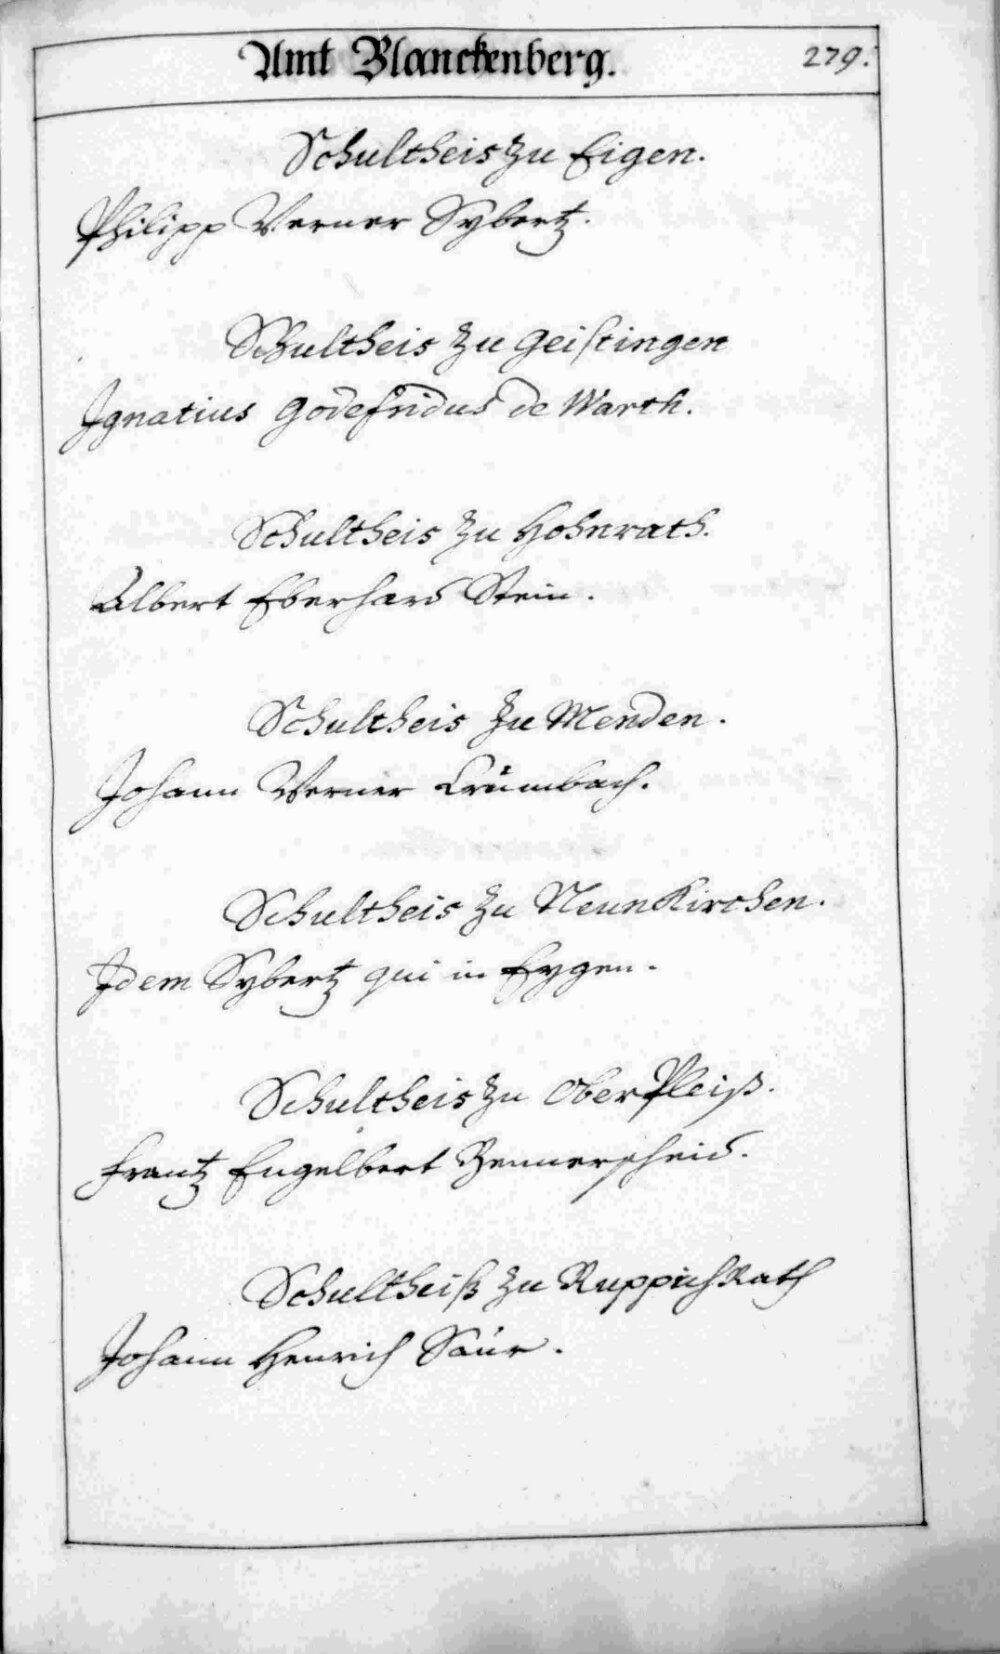 Amt Blanckenberg.
279.
Schultheis zu Eigen.
Philipp Verner Sybertz.
Schultheis zu Geistingen
Ignatius Godefridus de Warth.
Schultheis zu Hohnrath.
Albert Eberhard Stein.
Schultheis zu Menden.
Johann Verner Crümbach.
Schultheis zu NeunKirchen.
Idem Sybertz qui in Eygen.
Schultheis zu OberPleiß.
Frantz Engelbert
Schultheiß zu RuppichRath
Johann Henrich Saur.